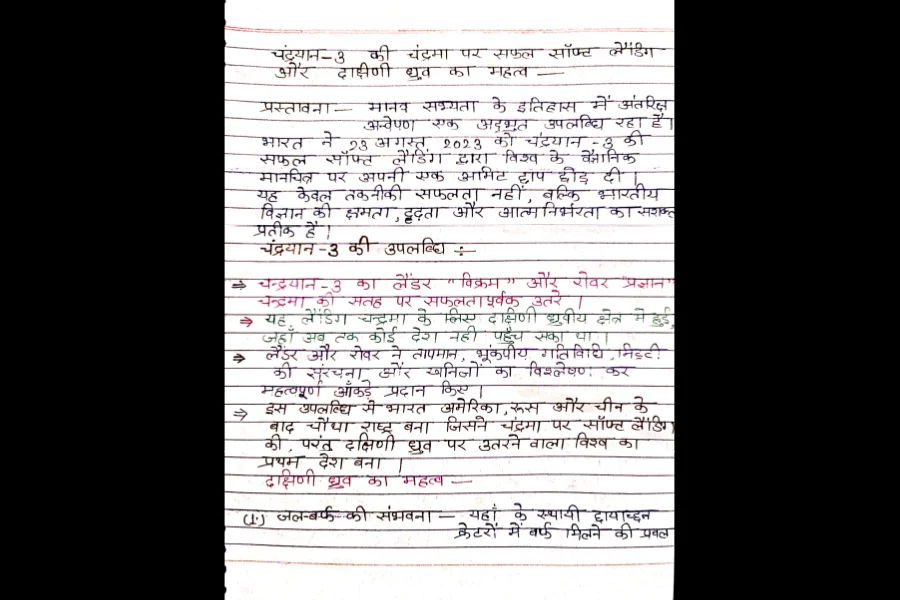 चंद्रयान-3 की चंद्रमा पर सफल सॉफ्ट लैंडिंग
और दाक्षिणी ध्रुव का महत्व —
प्रस्तावना — मानव सभ्यता के इतिहास में अंतरिक्ष
अन्वेषण एक अद्भुत उपलब्धि रहा है।
भारत ने 23 अगस्त, 2023 को चंद्रयान-3 की
सफल सॉफ्ट लैंडिंग द्वारा विश्व के वैज्ञानिक
मानचित्र पर अपनी एक अमिट छाप छोड़ दी।
यह केवल तकनीकी सफलता नहीं, बल्कि भारतीय
विज्ञान की क्षमता, दृढ़ता और आत्मनिर्भरता का सशक्त
प्रतीक है।
चंद्रयान-3 की उपलब्धि ÷
⇒ चन्द्रयान-3 का लैंडर "विक्रम" और रोवर "प्रज्ञान"
चन्द्रमा की सतह पर सफलतापूर्वक उतरे।
⇒ यह लैंडिंग चन्द्रमा के लिए दक्षिणी ध्रुवीय क्षेत्र में हुई,
जहाँ अब तक कोई देश नहीं पहुँच सका था।
⇒ लैंडर और रोवर ने तापमान, भूकंपीय गतिविधि, मिट्टी
की संरचना और खनिजों का विश्लेषण कर
महत्वपूर्ण आँकड़े प्रदान किए।
⇒ इस उपलब्धि से भारत अमेरिका, रूस और चीन के
बाद चौथा राष्ट्र बना जिसने चंद्रमा पर सॉफ्ट लैंडिंग
की, परंतु दक्षिणी ध्रुव पर उतरने वाला विश्व का
प्रथम देश बना।
दक्षिणी ध्रुव का महत्व —
(1.) जल-बर्फ की संभवना — यहाँ के स्थायी छायाच्छन्न
क्रेटरों में बर्फ मिलने की प्रबल